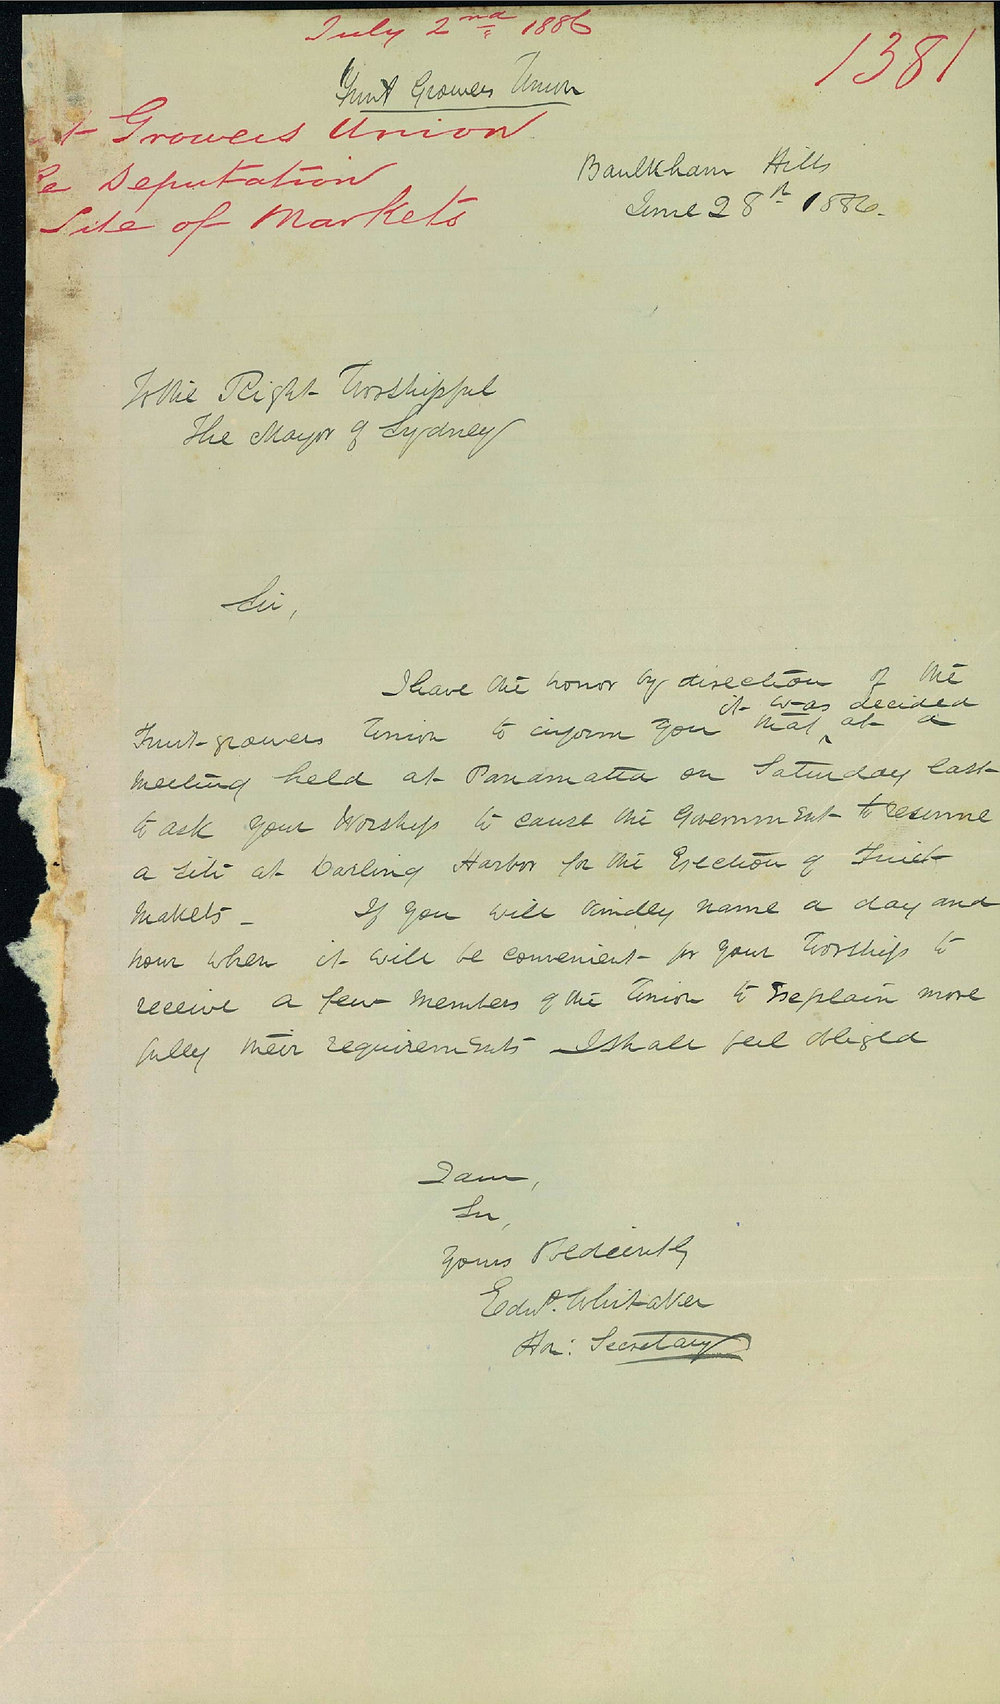 July 2nd 1886
1381
Fruit Growers Union
t Growers Union
Re Deputation
Site of Markets
Baulkham Hills
June 28th 1886.
To the Right Worshipful
The Mayor of Sydney
Sir,
I have the honor by direction of the
it was decided
Fruit-growers Union to inform you that ‸ at a
meeting held at Parramatta on Saturday last
to ask your Worship to cause the Government to resume
a site at Darling Harbor for the Erection of Fruit
Markets - If you will kindly name a day and
hour when it will be convenient for your Worship to
receive a few members of the Union to Explain more
fully their requirements I shall feel obliged
I am,
Sir,
Yours Obediently
Edwd. Whitaker
Hon: Secretary